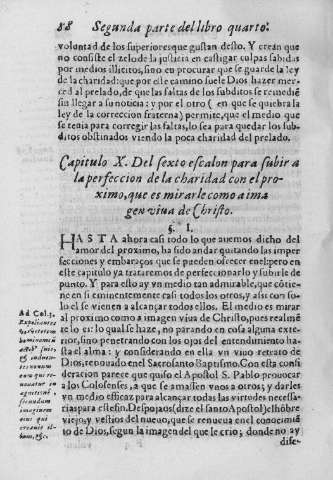 88 Segunda parte del libro quarto.
voluntad de los superiores que gustan desto. Y crean que
no consiste el zelo de la justicia en castigar culpas sabidas
por medios illicitos, sino en procurar que se guarde la ley
de la charidad: que por este camino suele Dios hazer mer-
ced al prelado, de que las faltas de los subditos se remediē
sin llegar a su noticia: y por el otro (en que se quiebra la
ley de la correccion fraterna) permite, que el medio que
se tenia para corregir las faltas, lo sea para quedar los sub-
ditos obstinados viendo la poca charidad del prelado.
Capitulo X. Del sexto escalon para subir a
la perfeccion de la charidad con el pro-
ximo, que es mirarle como a ima
gen viua de Christo.
§. I.
HASTA ahora casi todo lo que auemos dicho del
amor del proximo, ha sido andar quitando las imper-
fecciones y embaraços que se pueden ofrecer en el: pero en
este capitulo ya trataremos de perfeccionarlo y subirle de
punto. Y para esto ay vn medio tan admirable, que cōtie-
ne en si eminentemente casi todos los otros, y assi con so-
lo el se vienen a alcançar todos ellos. El medio es mirar
al proximo como a imagen viua de Christo, pues realmē
te lo es: lo qual se haze, no parando en cosa alguna exte-
rior, sino penetrando con los ojos del entendimiento ha-
sta el alma: y considerando en ella vn viuo retrato de
Dios, renouado en el Sacrosanto Baptismo. Con esta con
sideracion parece que quiso el Apostol S. Pablo prouocar
a los Colosenses, a que se amassen vnos a otros; y darles
vn medio eficaz para alcançar todas las virtudes necessa-
rias para este fin. Despojaos (dize el santo Apostol) el hōbre
viejo, y vestios del nueuo, que se renueua en el conocimiē
to de Dios, segun la imagen del que le crio; donde no ay
dife-
Ad Col. 3.
Expoliantes
vos veterem
hominem cū
actib' suis,
et induen-
tes nouum
eum qui re-
nouatur in
agnitionē,
secundum
imaginem
eius qui
creauit il-
lum, &c.